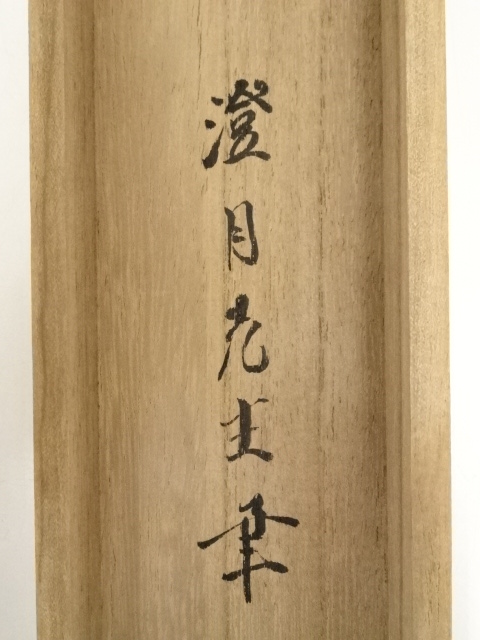 澄月先生筆